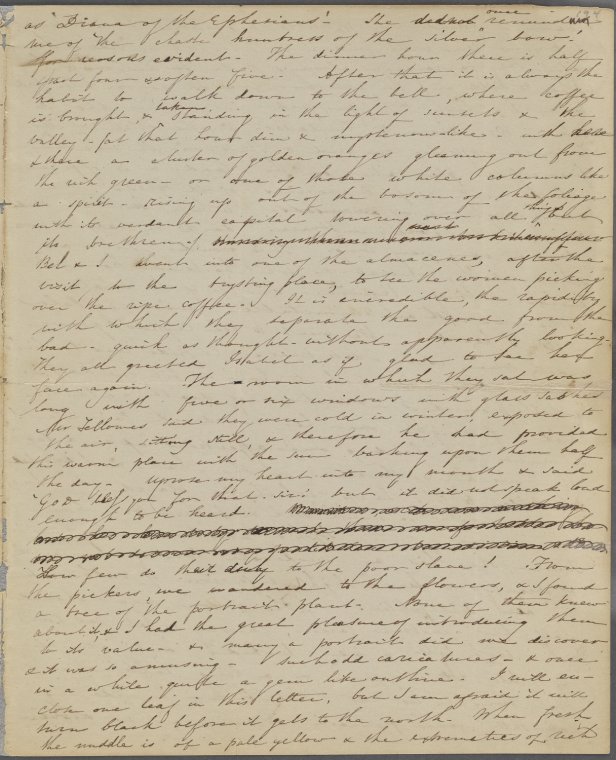 once
as "Diana of the Ephesians". She did not remind
me of "the chaste huntress of the silver bow"
for reasons evident. The dinner hour there is half
past four & often five. After that it is always the
habit to walk down to the bell, where coffee
is brought, & taken, standing in the light of sunsets & the
valley - (at that hour dim & mysterious like - with here
& there a cluster of golden oranges gleaming out from
the rich green - or one of those white columns like
a spirit - rising up out of the bosom of the foliage
with its verdant capital towering over all things but
its brethren -)
Bel & I went into one of the almacenes, after the
visit to the trysting place, to see the women picking
over the ripe coffee. It is incredible, the rapidity
with which they separate the good from the
bad - quick as thought - without apparently looking.
They all greeted Isabel as if glad to see her
face again. The room in which they sat was
long with five or six windows with glass sashes
Mr Fellowes said they were cold in winter, exposed to
the air, sitting still, & therefore he had provided
this warm place with the sun basking upon them half
the day. Uprose my heart into my mouth & said
"God bless you for that, sir" but it did not speak loud
enough to be heard.
How few do their duty to the poor slave! From
the pickers, we wandered to the flowers, & I found
a tree of the portrait plant. None of them knew
about it, & I had the great pleasure of introducing them
to its value - & many a portrait did we discover
& it was so amusing - Such odd caricatures - & once
in a while quite a gem like outline. I will en-
close one leaf in this letter, but I am afraid it will
turn black before it gets to the north. When fresh
the middle is of a pale yellow & the extremities of rich